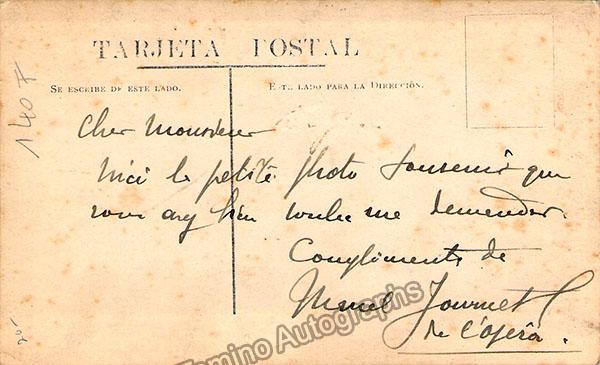 TARJETA POSTAL
SE ESCRIBE DE ESTE LADO.
ESTE LADO PARA LA DIRECCIÓN.
140 F
Cher Monsieur
Voici la petite photo souvenir que
vous avez bien voulu me demander.
Compliments de
Marcel Journet
de l'opéra.
Tamino Autographs